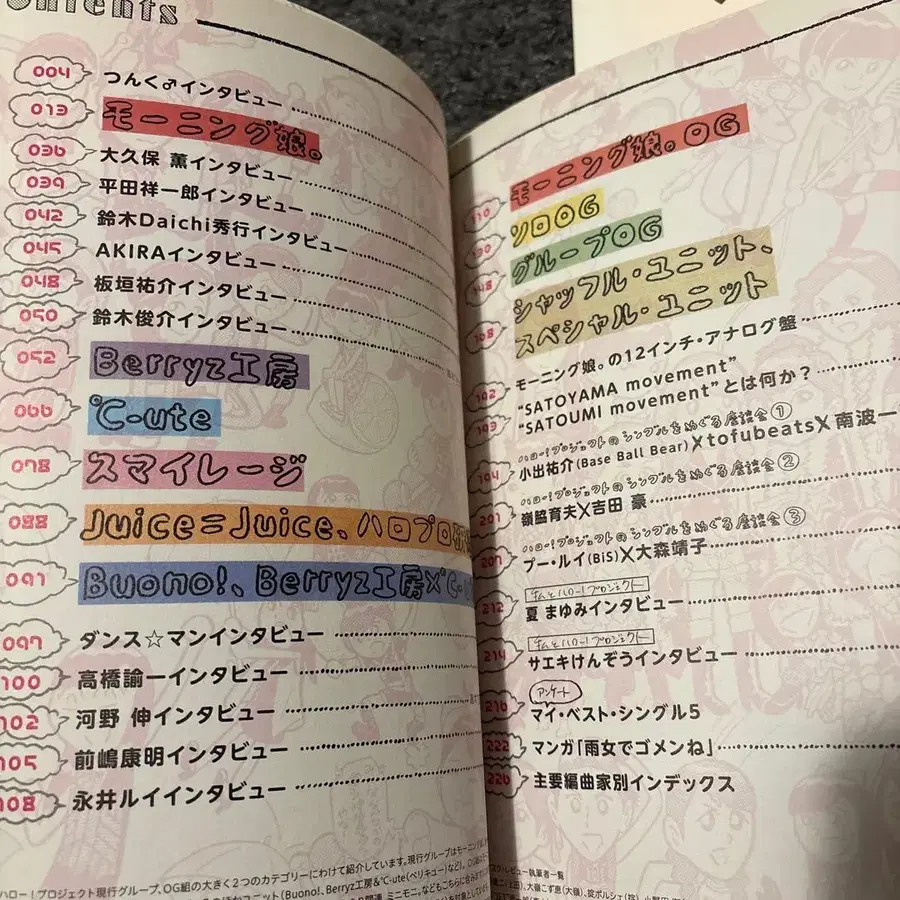 ontents
004 つんく♂インタビュー
013 モーニング娘。
036 大久保 薫インタビュー
039 平田祥一郎インタビュー
042 鈴木Daichi秀行インタビュー
045 AKIRAインタビュー
048 板垣祐介インタビュー
050 鈴木俊介インタビュー
052 Berryz工房
066 ℃-ute
078 スマイレージ
088 Juice=Juice、ハロプロ研
091 Buono!、Berryz工房×℃-u
097 ダンス☆マンインタビュー
100 高橋諭一インタビュー
102 河野 伸インタビュー
105 前嶋康明インタビュー
108 永井ルイインタビュー
ハロー!プロジェクト現行グループ、OG組の大きく2つのカテゴリーにわけて紹介しています。現行グループはモーニング娘。
ユニット(Buono!、Berryz工房&℃-ute(ベリキュー)など)。
110 モーニング娘。OG
130 ソロOG
148 グループOG
168 シャッフル・ユニット、
スペシャル・ユニット
192 モーニング娘。の12インチ・アナログ盤
193 "SATOYAMA movement"
"SATOUMI movement"とは何か?
ハロー!プロジェクトのシングルをめぐる座談会①
194 小出祐介(Base Ball Bear)×tofubeats×南波一
ハロー!プロジェクトのシングルをめぐる座談会②
201 嶺脇育夫×吉田 豪
ハロー!プロジェクトのシングルをめぐる座談会③
207 プー・ルイ(BiS)×大森靖子
私とハロー!プロジェクト
212 夏 まゆみインタビュー
私とハロー!プロジェクト
214 サエキけんぞうインタビュー
アンケート
216 マイ・ベスト・シングル5
222 マンガ「雨女でゴメンね」
226 主要編曲家別インデックス
レビュー執筆者一覧
大嶺こず恵(大嶺)、錠ポルシェ(錠)